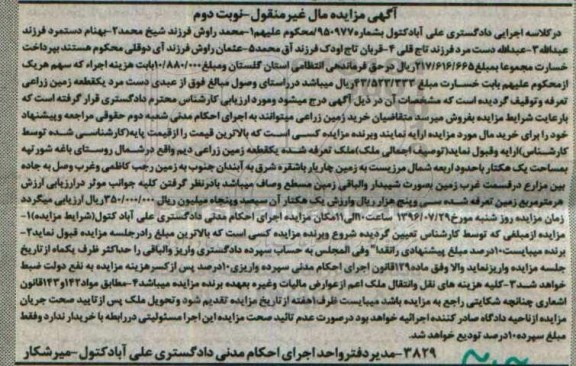 آگهی مزایده مال غیر منقول-نوبت دوم
درکلاسه اجرایی دادگستری علی آبادکتول بشماره۹۵۰۹۷۷/محکوم علیهم۱-محمد راوش فرزند شیخ محمد۲-بهنام دستمرد فرزند
عبداله۳-عبداله دست مرد فرزند تاج قلی ۴-قربان تاج اودک فرزند آق محمد۵-عثمان راوش فرزند آی دوقلی محکوم هستند بپرداخت
خسارت مجموعا بمبلغ۲۱۷/۶۱۶/۶۶۵ریال درحق فرماندهی انتظامی استان گلستان ومبلغ۱۰/۸۸۰/۰۰۰بابت هزینه اجراء که سهم هریک
ازمحکوم علیهم بابت خسارت مبلغ ۴۳/۵۲۳/۳۳۳ریال میباشد درراستای وصول مبالغ فوق از عبدی دست مرد یکقطعه زمین زراعی
تعرفه وتوقیف گردیده است که مشخصات آن در ذیل آگهی درج میشود ومورد ارزیابی کارشناس محترم دادگستری قرار گرفته است که
بارعایت شرایط مزایده بفروش میرسد متقاضیان خرید زمین زراعی میتوانند به اجرای احکام مدنی شعبه دوم حقوقی مراجعه وپیشنهاد
خود را برای خرید مال مورد مزایده ارایه نمایند وبرنده مزایده کسی است که بالاترین قیمت را ازقیمت پایه(کارشناسی شده توسط
کارشناس)ارایه وقبول نماید(توصیف اجمالی ملک)ملک تعرفه شده یکقطعه زمین زراعی دیم واقع درشمال روستای باغه شورتپه
بمساحت یک هکتار باحدود اربعه شمال مرزیست به زمین چاریار باشقره شرق به آبندان جنوب به زمین رجب کاظمی وغرب وصل به جاده
بین مزارع درقسمت غرب زمین بصورت شیبدار والباقی زمین مسطح وصاف میباشد بادرنظر گرفتن کلیه جوانب موثر درارزیابی ارزش
هرمترمربع زمین تعرفه شده سی وپنج هزار ریال وارزش یک هکتار آن سیصد وپنجاه میلیون ریال ۳۵۰/۰۰۰/۰۰۰ریال ارزیابی میگردد
زمان مزایده روز شنبه مورخ۱۳۹۶/۰۷/۲۹ ساعت۱۰الی۱۱مکان مزایده اجرای احکام مدنی دادگستری علی آباد کتول(شرایط مزایده)۱-
مزایده ازمبلغی که توسط کارشناس تعیین گردیده شروع وبرنده مزایده کسی است که بالاترین مبلغ رادرجلسه مزایده قبول نماید۲-
برنده میبایست۱۰درصد مبلغ پیشنهادی رانقدا" وفی المجلس به حساب سپرده دادگستری واریز والباقی را حداکثر ظرف یکماه از تاریخ
جلسه مزایده واریزنماید والا وفق ماده۱۲۹قانون اجرای احکام مدنی سپرده واریزی۱۰درصد پس ازکسرهزینه مزایده به نفع دولت ضبط
خواهد شد۳-کلیه هزینه های نقل وانتقال ملک اعم ازعوارض مالیات وغیره بعهده برنده مزایده میباشد۴-مطابق مواد۱۴۲و۱۴۳قانون
اشعاری چنانچه شکایتی راجع به مزایده باشد میبایست ظرف۱هفته از تاریخ مزایده تقدیم شود وتحویل ملک پس ازتایید صحت جریان
مزایده ازناحیه دادگاه صادر کننده اجرائیه خواهد بود درصورت عدم تائید صحت مزایده این اجرا مسئولیتی دررابطه با خریدار ندارد وفقط
مبلغ سپرده۱۰درصد تودیع خواهد شد.
۳۸۲۹-مدیر دفتر واحد اجرای احکام مدنی دادگستری علی آبادکتول-میرشکار